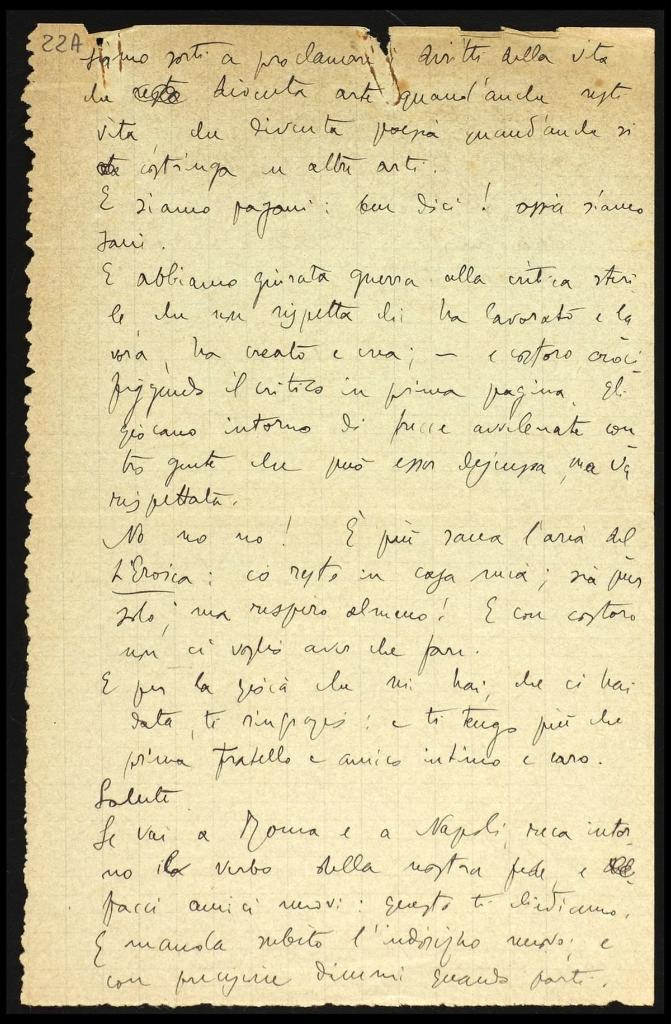 22A
siamo sorti a proclamare i diritti della vita
che diventa arte quand'anche resti
vita che diventa poesia quand'anche si
costringa in altre arti.
E siamo pagani: ben dici! ossia siamo
sani.
E abbiamo giurata guerra alla critica steri
le che non rispetta chi ha lavorato e la
vora, ha creato e crea; — e costoro croci
figgendo il critico in prima pagina, gli
giocano intorno di frecce avvelenate con
tro gente che può esser discussa, ma va
rispettata.
No no no! È più sana l'aria del
L'Eroica: io resto in casa mia; sia pur
solo; ma respiro almeno! E con costoro
non ci voglio aver che fare.
E per la gioia che mi hai, che ci hai
data, ti ringrazio: e ti tengo più che
prima fratello e amico intimo e caro.
Salute
Se vai a Roma e a Napoli, reca intor
no il verbo della nostra fede, e
facci amici nuovi: questo ti chiediamo.
E manda subito l'indirizzo nuovo; e
con precisione dimmi quando parti.